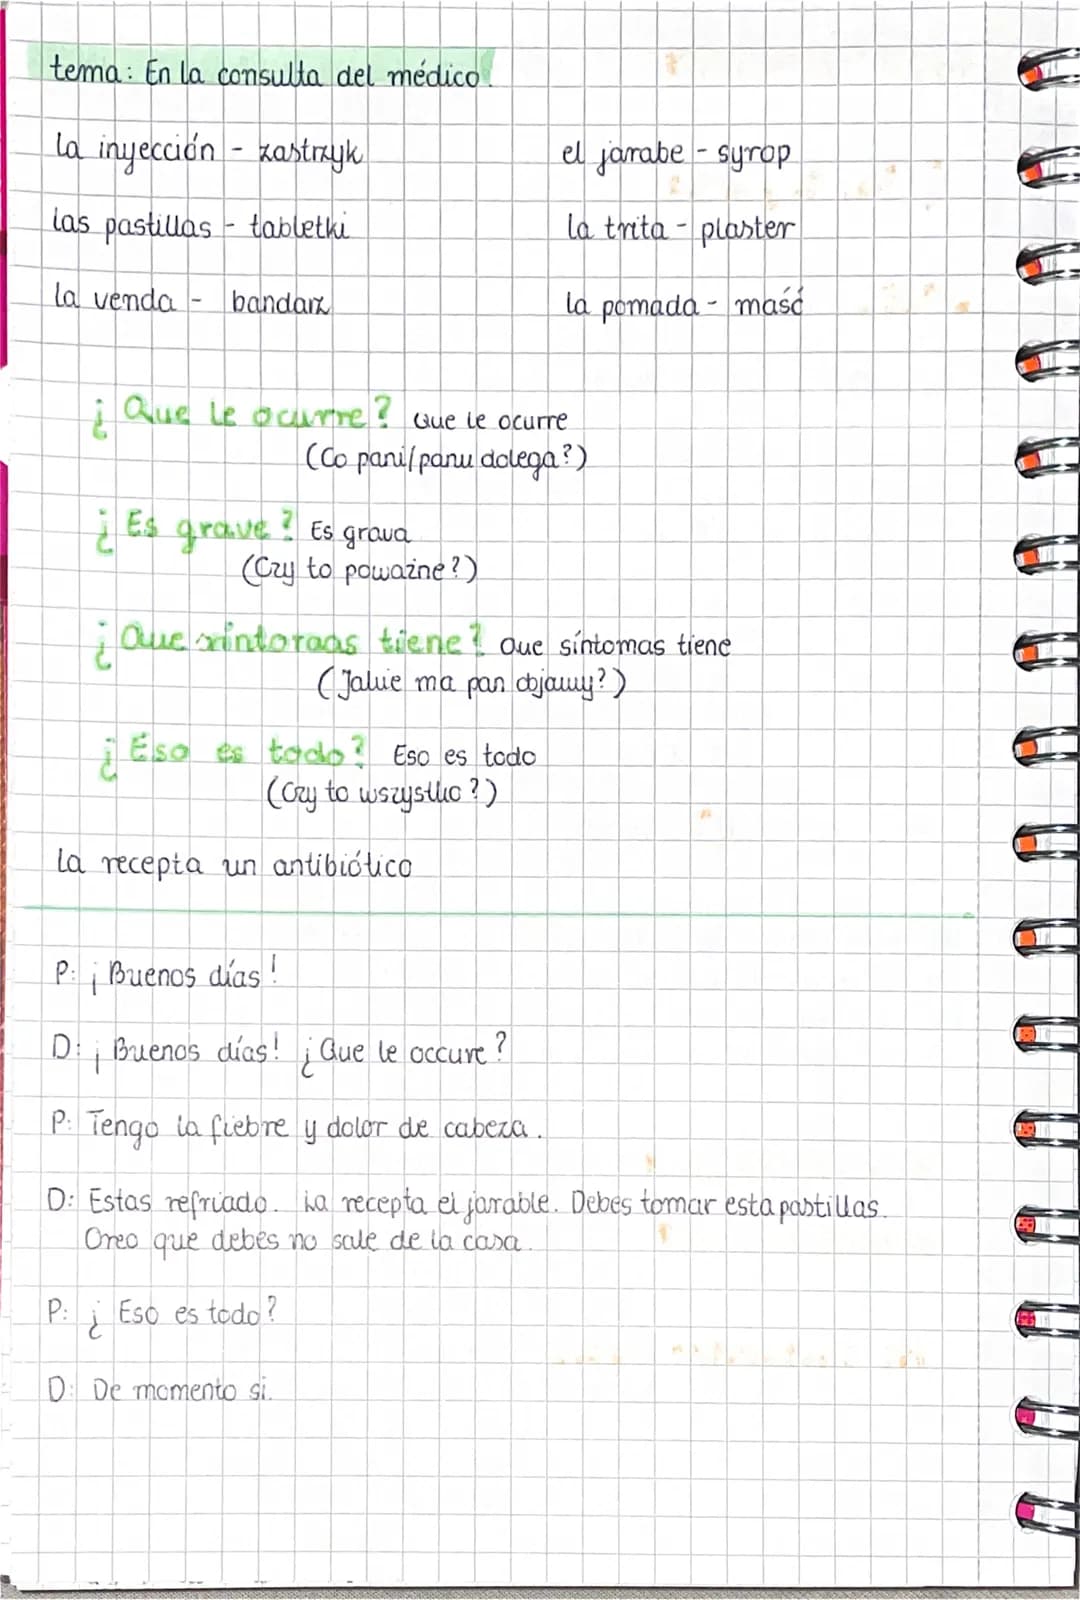 tema: En la consulta del médico.
la inyección - zastrzyk
el jarabe - syrop
las pastillas - tabletki
la trita - plaster
la venda - bandaż
la pomada - maść
¿ Que le ocurre? Que le ocurre
(Co pani/panu dolega?)
¿ Es grave? Es grava
(Czy to poważne?)
¿ Que sintoraas tiene? Que síntomas tiene
(Jakie ma pan objawy?)
¿ Eso es todo? Eso es todo
(Czy to wszystko?)
la recepta un antibiótico
P: ¡ Buenos días!
D: ¡ Buenos días! ¿ Que le occure?
P: Tengo la fiebre y dolor de cabeza.
D: Estas refriado. La recepta el jarable. Debes tomar esta pastillas.
Creo que debes no sale de la casa.
P: ¿ Eso es todo?
D: De momento si.